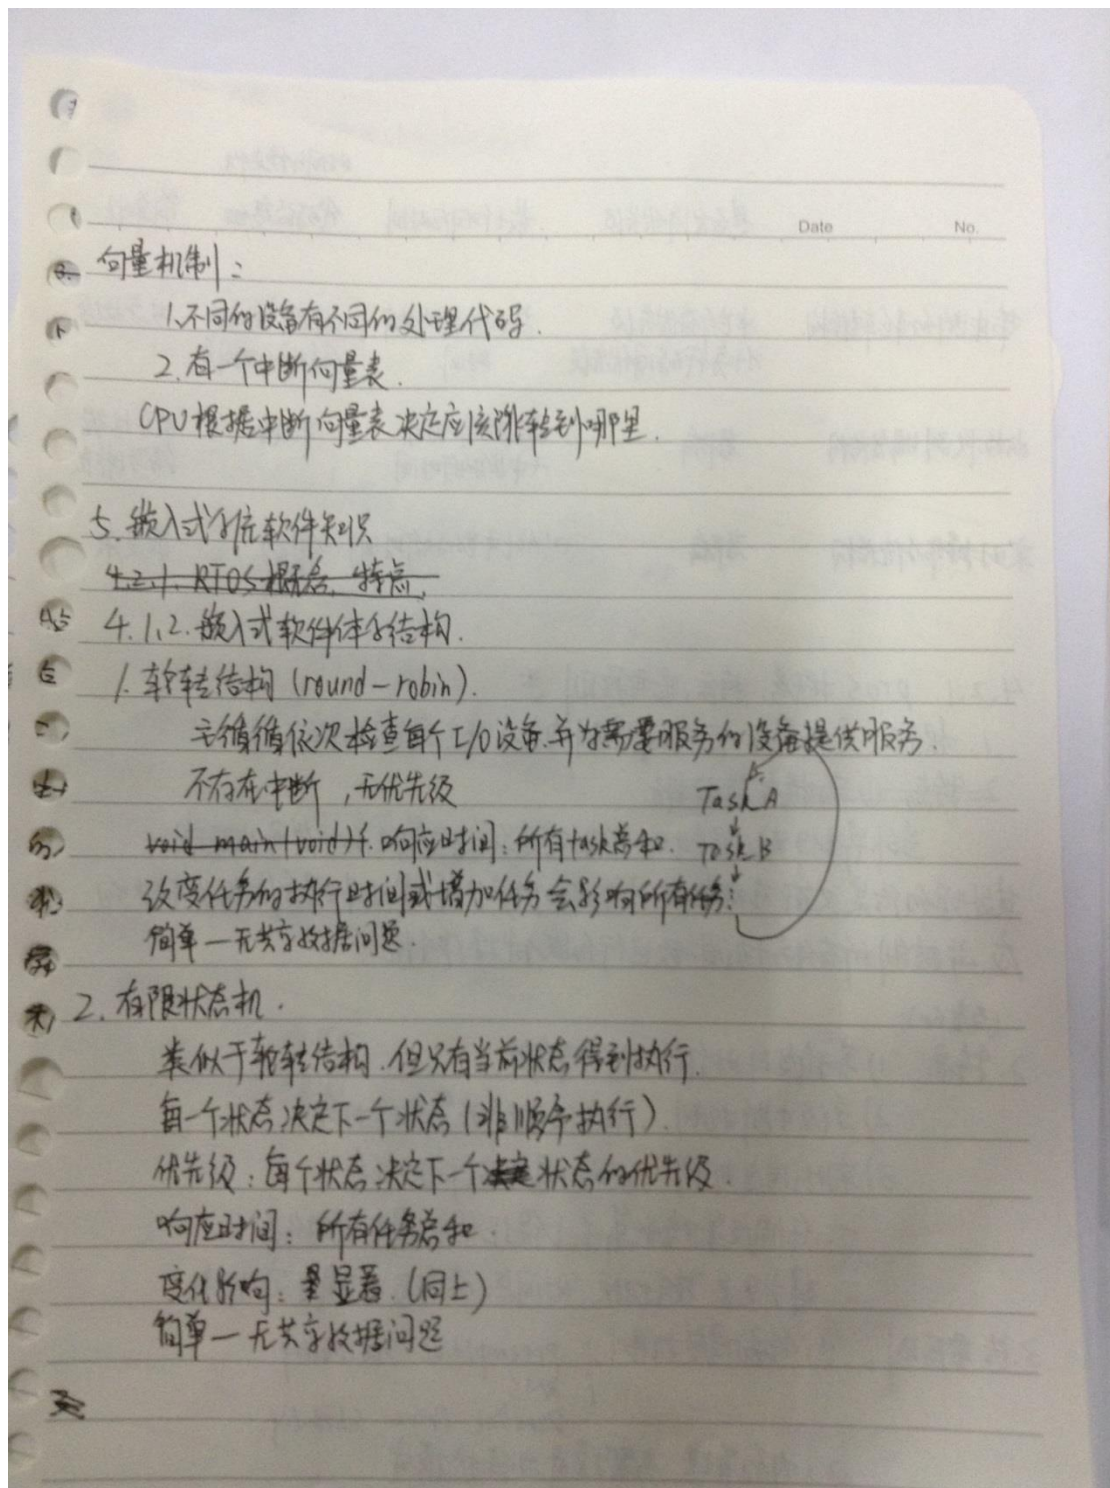 Date No.
向量机制：
1.不同的设备有不同的处理代码.
2.有一个中断向量表.
CPU根据中断向量表决定应该跳转到哪里.
5.嵌入式系统软件知识
4.2.1. RTOS概念、特点.
4.1.2.嵌入式软件体系结构.
1.轮转结构(round-robin).
主循循依次检查每个I/O设备.并为需要服务的设备提供服务.
不存在中断,无优先级
Task A
void main(void){. 响应时间:所有task总和.
Task B
改变任务的执行时间或增加任务会影响所有任务.
简单—无共享数据问题.
2.有限状态机.
类似于轮转结构.但只有当前状态得到执行.
每一个状态决定下一个状态(非顺序执行).
优先级:每个状态决定下一个状态的优先级.
响应时间:所有任务总和.
变化影响:显著.(同上)
简单—无共享数据问题